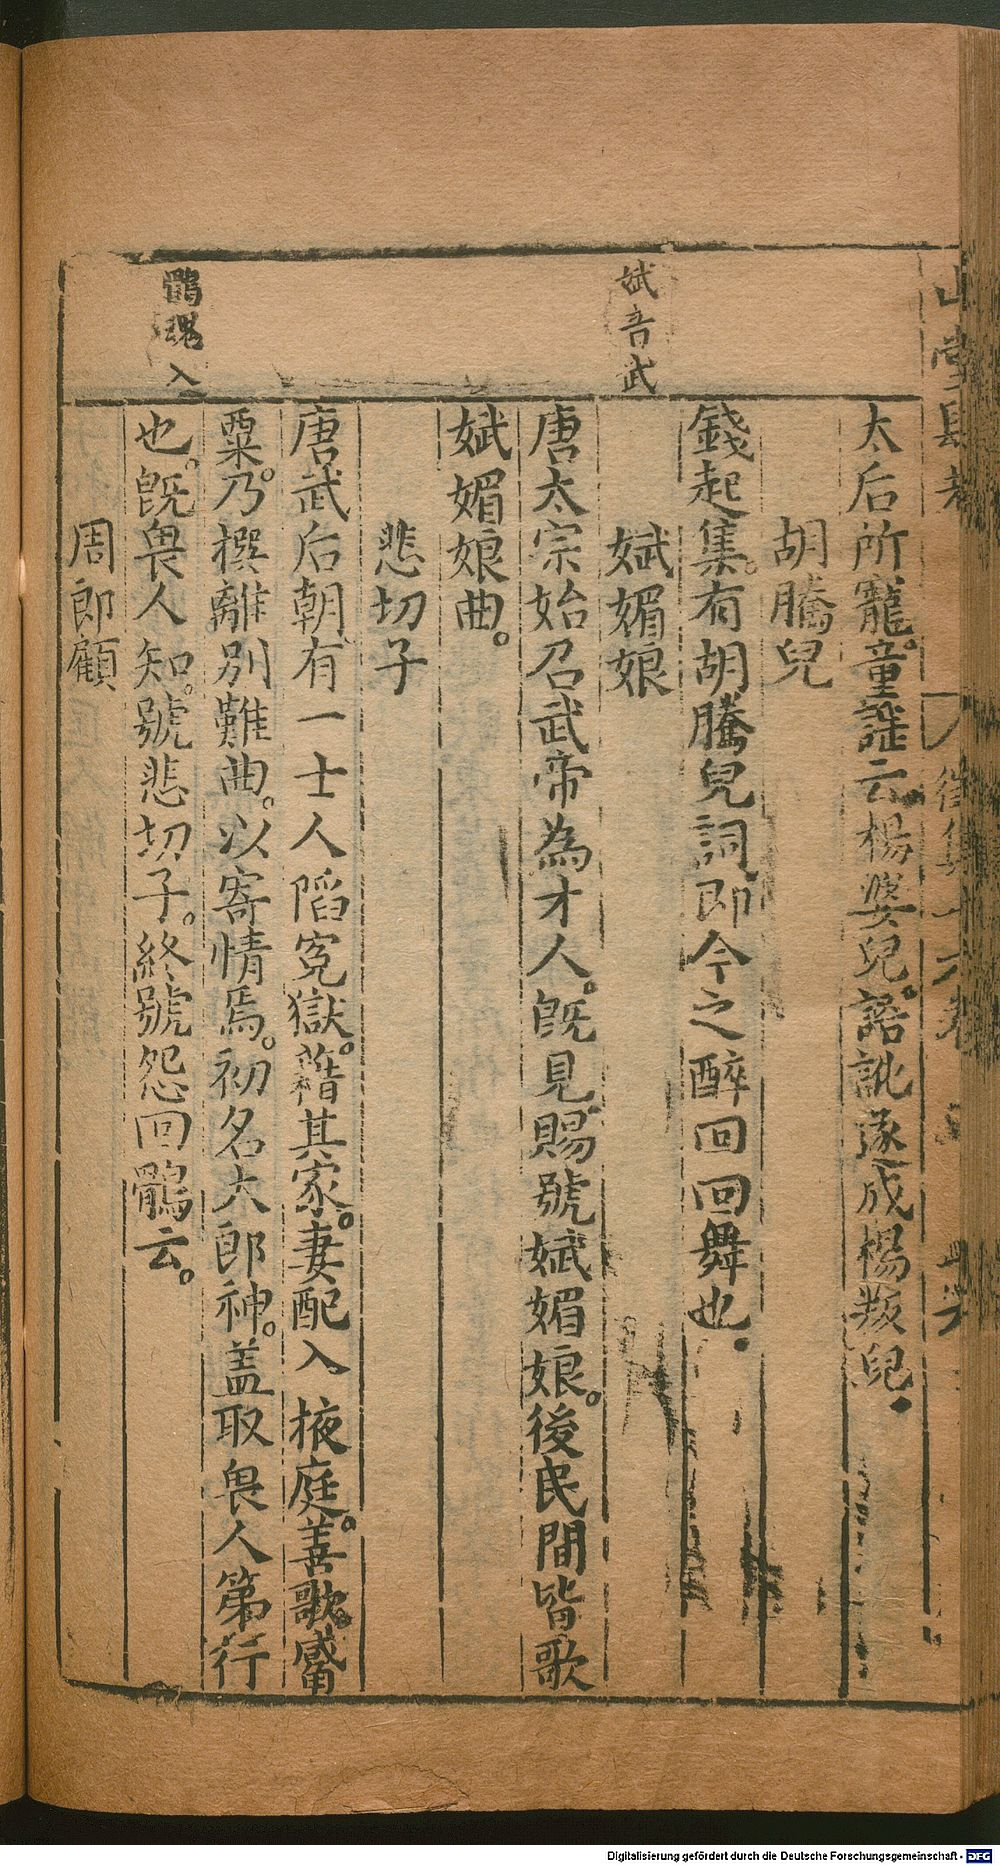 太后所寵。童謡云楊婆兒。語訛遂成楊叛兒。
胡騰兒
錢起集。有胡騰兒詞。即今之醉回回舞也。
斌音武
娬媚娘
唐太宗始召武帝為才人。旣見賜號娬媚娘。後民間皆歌
娬媚娘曲。
悲切子
唐武后朝有一士人陷寃獄。藉其家。妻配入掖庭。善歌。
粟。乃撰離別難曲。以寄情焉。初名大郎神。盖取畏人第行
鶻 入
也。旣畏人知。號悲切子。終號怨回鶻云。
周郎顧
Digitalisierung gefördert durch die Deutsche Forschungsgemeinschaft - DFG